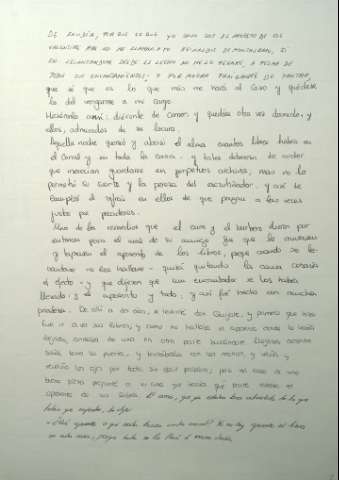 DE ENVIDIA, POR QUE VE QUE YO SOLO SOY EL OPUESTO DE SUS
VALENTÍAS. MAS NO ME LLAMARÍA YO REINALDOS DE MONTALBÁN, SI
EN LEVANTÁNDOME DESTE LECHO NO ME LO PAGARE, A PESAR DE
TODOS SUS ENCANTAMENTOS; Y POR AHORA TRÁIGANME DE YANTAR,
que sé que es lo que más me hará al caso y quédese
lo del vengarme a mi cargo.
Hiciéronlo así: diéronle de comer, y quedóse otra vez dormido, y
ellos, admirados de su locura.
Aquella noche quemó y abrasó el ama cuantos libros había en
el corral y en toda la casa, y tales debieron de arder
que merecían guardarse en perpetuos archivos; mas no lo
permitió su suerte y la pereza del escrutiñador, y así se
cumplió el refrán en ellos de que pagan a las veces
justos por pecadores.
Uno de los remedios que el cura y el barbero dieron por
entonces para el mal de su amigo fue que le murasen
y tapiasen el aposento de los libros, porque cuando se le-
vantase no los hallase - quizá quitando la causa cesaría
el efeto - y que dijesen que un encantador se los había
llevado, y el aposento y todo; y así fue hecho con mucha
presteza. De allí a dos días, se levantó don Quijote, y lo primero que hizo
fue ir a ver sus libros; y como no hallaba el aposento donde le había
dejado, andaba de una en otra parte buscándole. Llegaba adonde
solía tener la puerta, y tentábala con las manos, y volvía y
revolvía los ojos por todo, sin decir palabra; pero al cabo de una
buena pieza preguntó a su ama que hacia qué parte estaba el
aposento de sus libros. El ama, que ya estaba bien advertida de lo que
había de responder, le dijo: